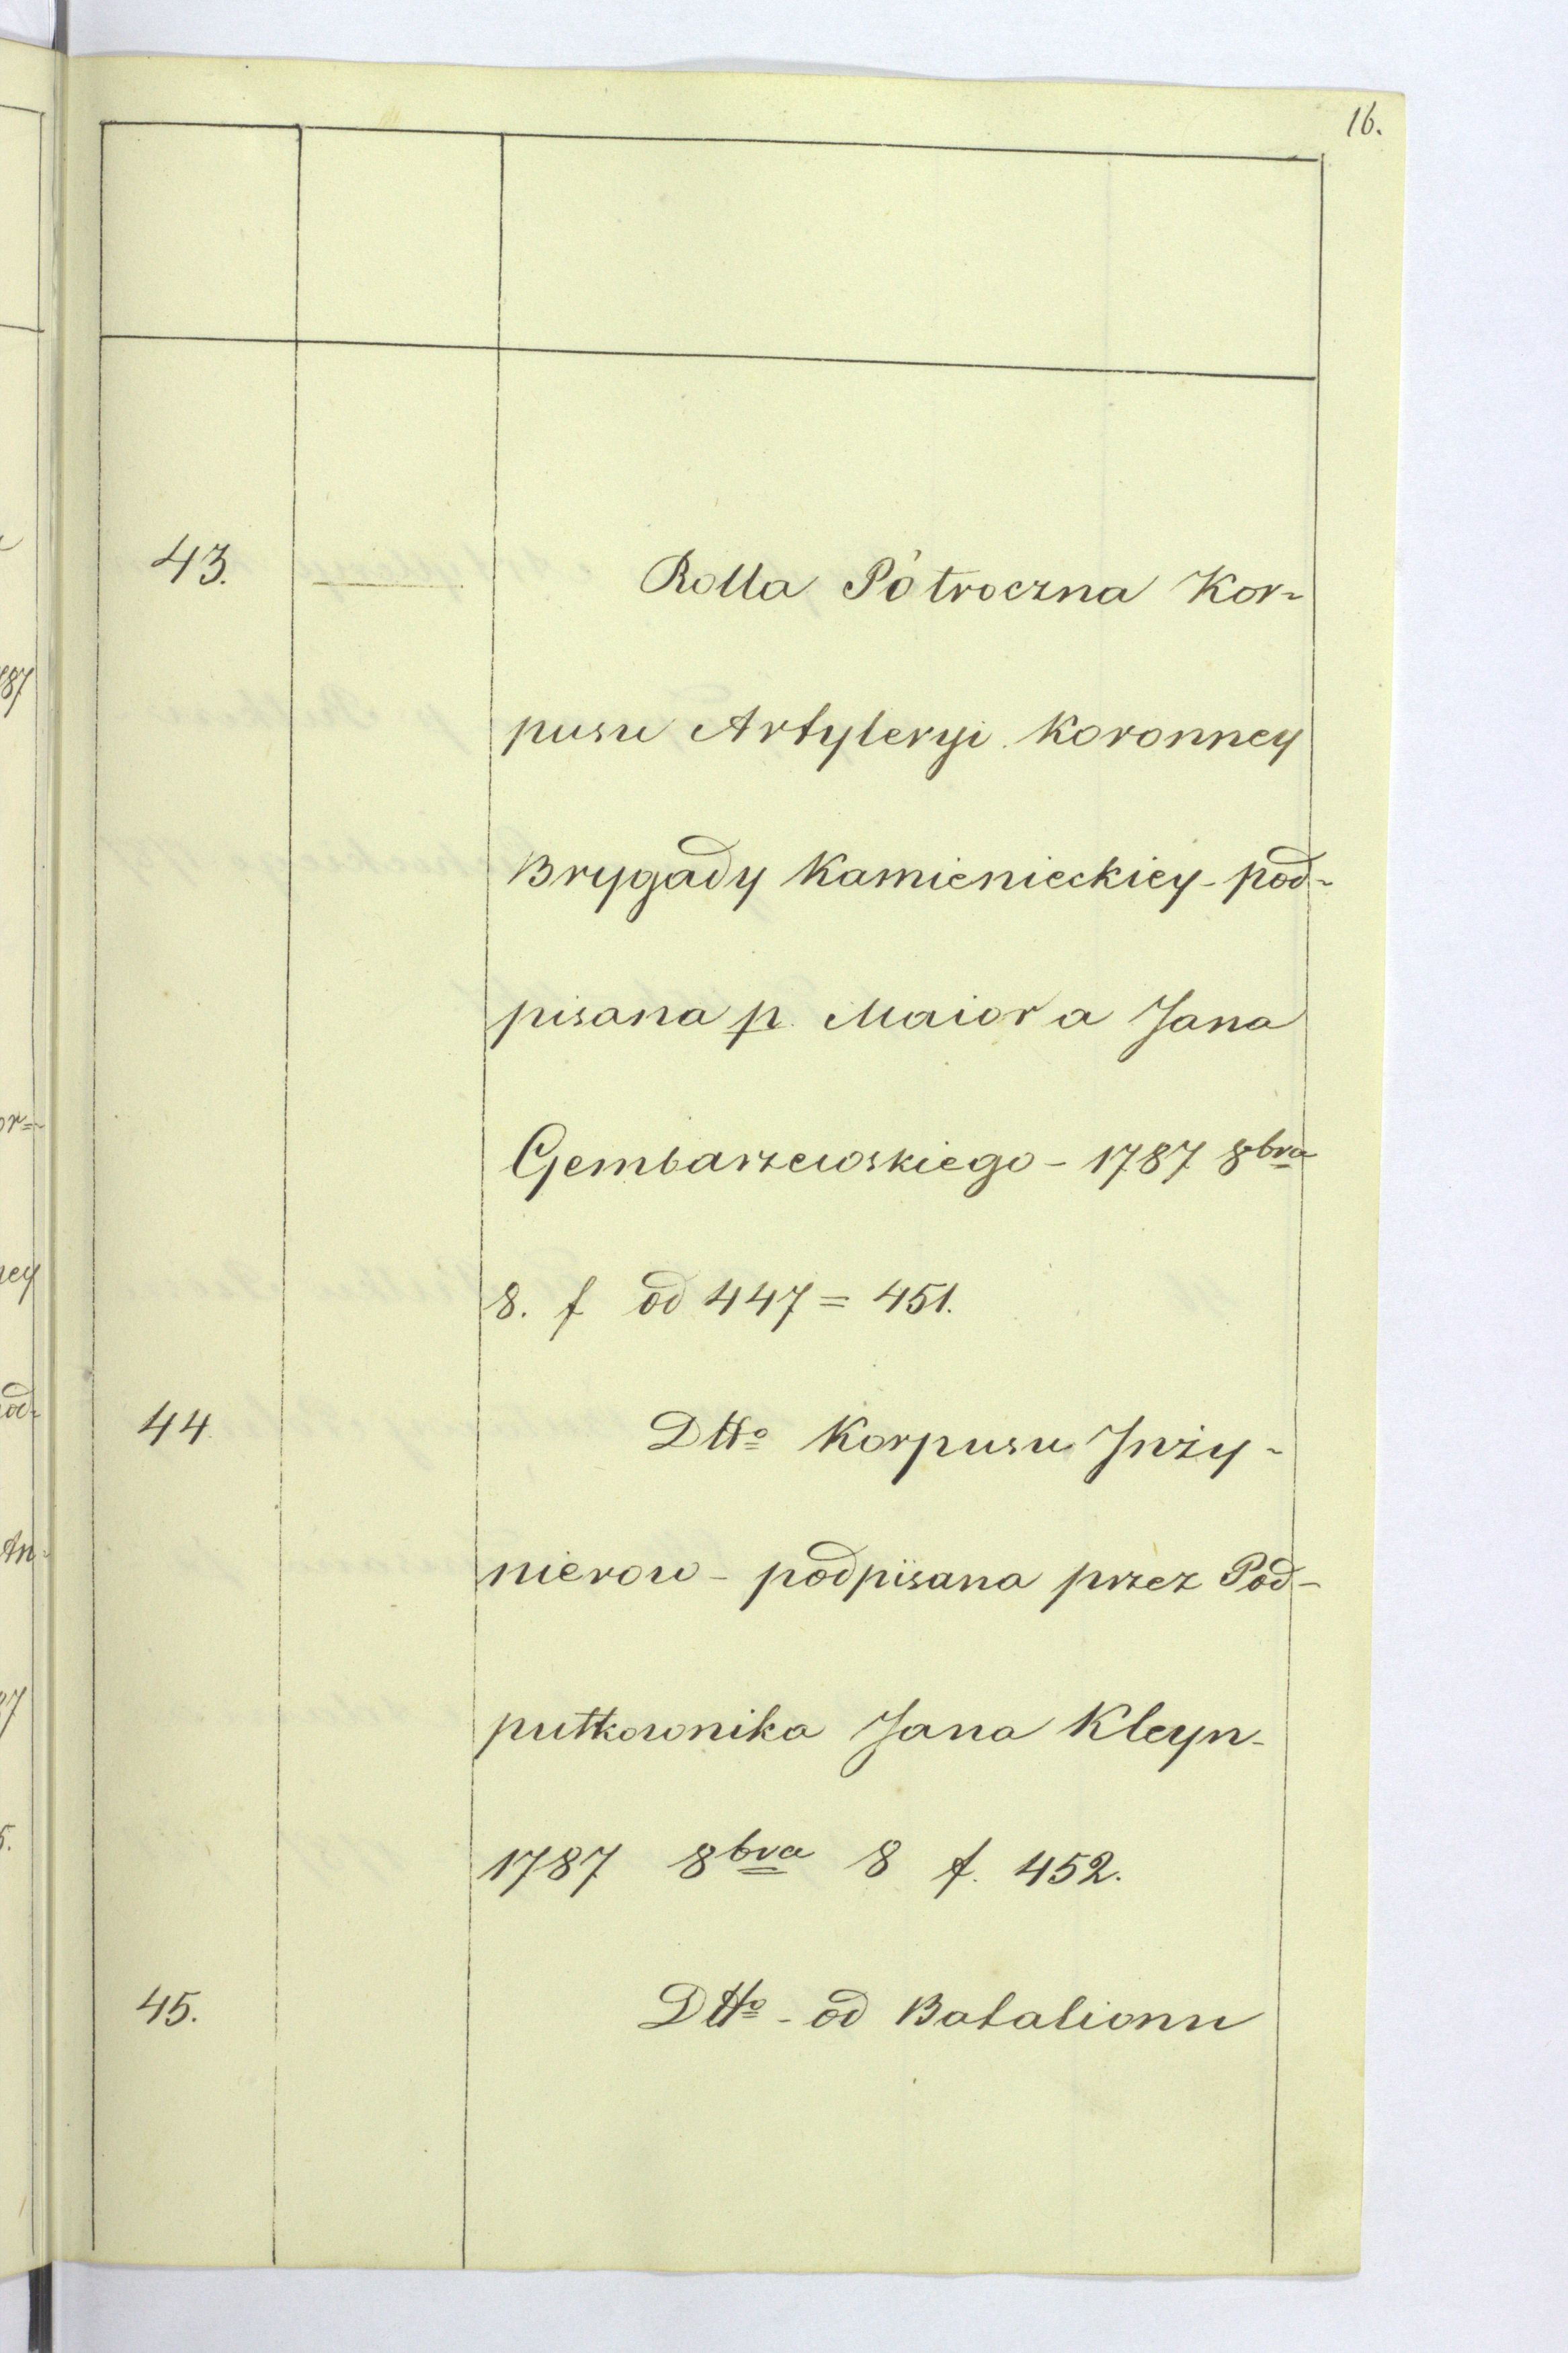 16.
43. Rolla Półroczna Kor-
pusu Artyleryi Koronney
Brygady Kamienieckiey - pod-
pisana p. Maiora Jana
Gembarzewskiego - 1787 8bra
8. f od 447 = 451.
44 Dtto Korpusu Inży-
nierow - podpisana przez Pod-
pułkownika Jana Kleyn -
1787 8bra 8 f. 452.
45. Dtto - od Batalionu